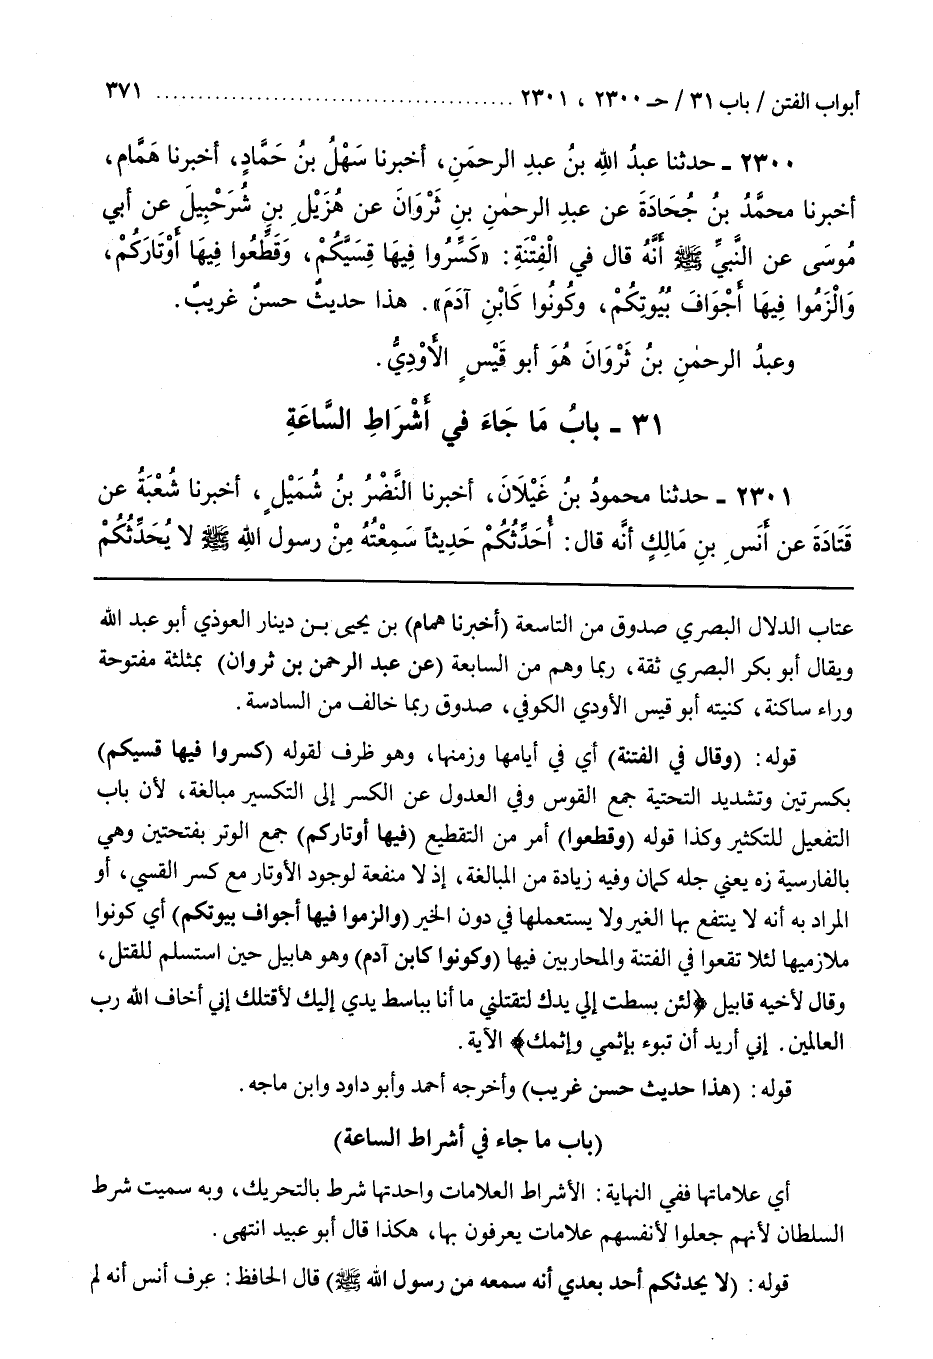 أبواب الفتن / باب ٣١ / حـ ٢٣٠٠ ، ٢٣٠١ ........................................ ٣٧١
٢٣٠٠ ـ حدثنا عبدُ اللهِ بنُ عبدِ الرحمَنِ، أخبرنا سَهْلُ بنُ حَمَّادٍ، أخبرنا هَمَّام،
أخبرنا محمَّدُ بنُ جُحَادَةَ عن عبدِ الرحمٰنِ بنِ ثَرْوَانَ عن هُزَيْلِ بنِ شُرَحْبِيلَ عن أبي
مُوسَى عن النَّبيِّ ﷺ أَنَّهُ قال في الْفِتْنَةِ: «كَسِّرُوا فِيهَا قِسِيَّكُمْ، وَقَطِّعُوا فِيهَا أَوْتَارَكُمْ،
وَالْزَمُوا فِيهَا أَجْوَافَ بُيُوتِكُمْ، وكُونُوا كَابْنِ آدَمَ». هذا حديثٌ حسنٌ غريبٌ.
وعبدُ الرحمٰنِ بنُ ثَرْوَانَ هُوَ أبو قَيْسٍ الأَوْدِيُّ.
٣١ ـ بابُ مَا جَاءَ في أَشْرَاطِ السَّاعَةِ
٢٣٠١ ـ حدثنا محمودُ بنُ غَيْلَانَ، أخبرنا النَّضْرُ بنُ شُمَيْلٍ، أخبرنا شُعْبَةُ عن
قَتَادَةَ عن أَنَسِ بنِ مَالِكٍ أنَّه قال: أُحَدِّثُكُمْ حَدِيثاً سَمِعْتُهُ مِنْ رسول اللهِ ﷺ لا يُحَدِّثُكُمْ
عتاب الدلال البصري صدوق من التاسعة (أخبرنا همام) بن يحيى بـن دينار العوذي أبو عبد الله
ويقال أبو بكر البصري ثقة، ربما وهم من السابعة (عن عبد الرحمن بن ثروان) بمثلثة مفتوحة
وراء ساكنة، كنيته أبو قيس الأودي الكوفي، صدوق ربما خالف من السادسة.
قوله: (وقال في الفتنة) أي في أيامها وزمنها، وهو ظرف لقوله (كسروا فيها قسيكم)
بكسرتين وتشديد التحتية جمع القوس وفي العدول عن الكسر إلى التكسير مبالغة، لأن باب
التفعيل للتكثير وكذا قوله (وقطعوا) أمر من التقطيع (فيها أوتاركم) جمع الوتر بفتحتين وهي
بالفارسية زه يعني جله كمان وفيه زيادة من المبالغة، إذ لا منفعة لوجود الأوتار مع كسر القسي، أو
المراد به أنه لا ينتفع بها الغير ولا يستعملها في دون الخير (والزموا فيها أجواف بيوتكم) أي كونوا
ملازميها لئلا تقعوا في الفتنة والمحاربين فيها (وكونوا كابن آدم) وهو هابيل حين استسلم للقتل،
وقال لأخيه قابيل ﴿لئن بسطت إلي يدك لتقتلني ما أنا بباسط يدي إليك لأقتلك إني أخاف الله رب
العالمين. إني أريد أن تبوء بإثمي وإثمك﴾ الآية.
قوله: (هذا حديث حسن غريب) وأخرجه أحمد وأبو داود وابن ماجه.
(باب ما جاء في أشراط الساعة)
أي علاماتها ففي النهاية: الأشراط العلامات واحدتها شرط بالتحريك، وبه سميت شرط
السلطان لأنهم جعلوا لأنفسهم علامات يعرفون بها، هكذا قال أبو عبيد انتهى.
قوله: (لا يحدثكم أحد بعدي أنه سمعه من رسول الله ﷺ) قال الحافظ: عرف أنس أنه لم